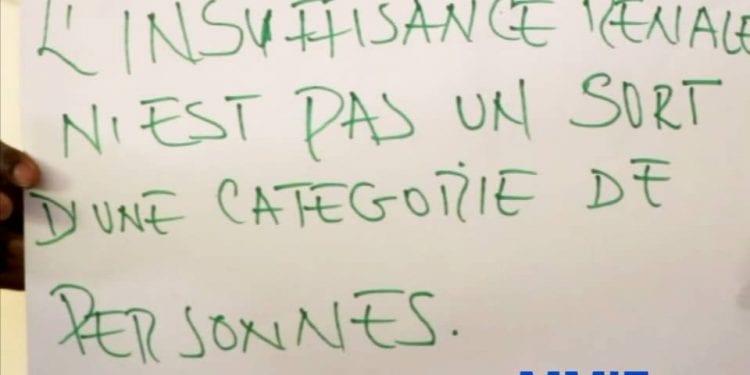 L'INSUFFISANCE RENALE
N'EST PAS UN SORT
D'UNE CATEGORIE DE
PERSONNES.